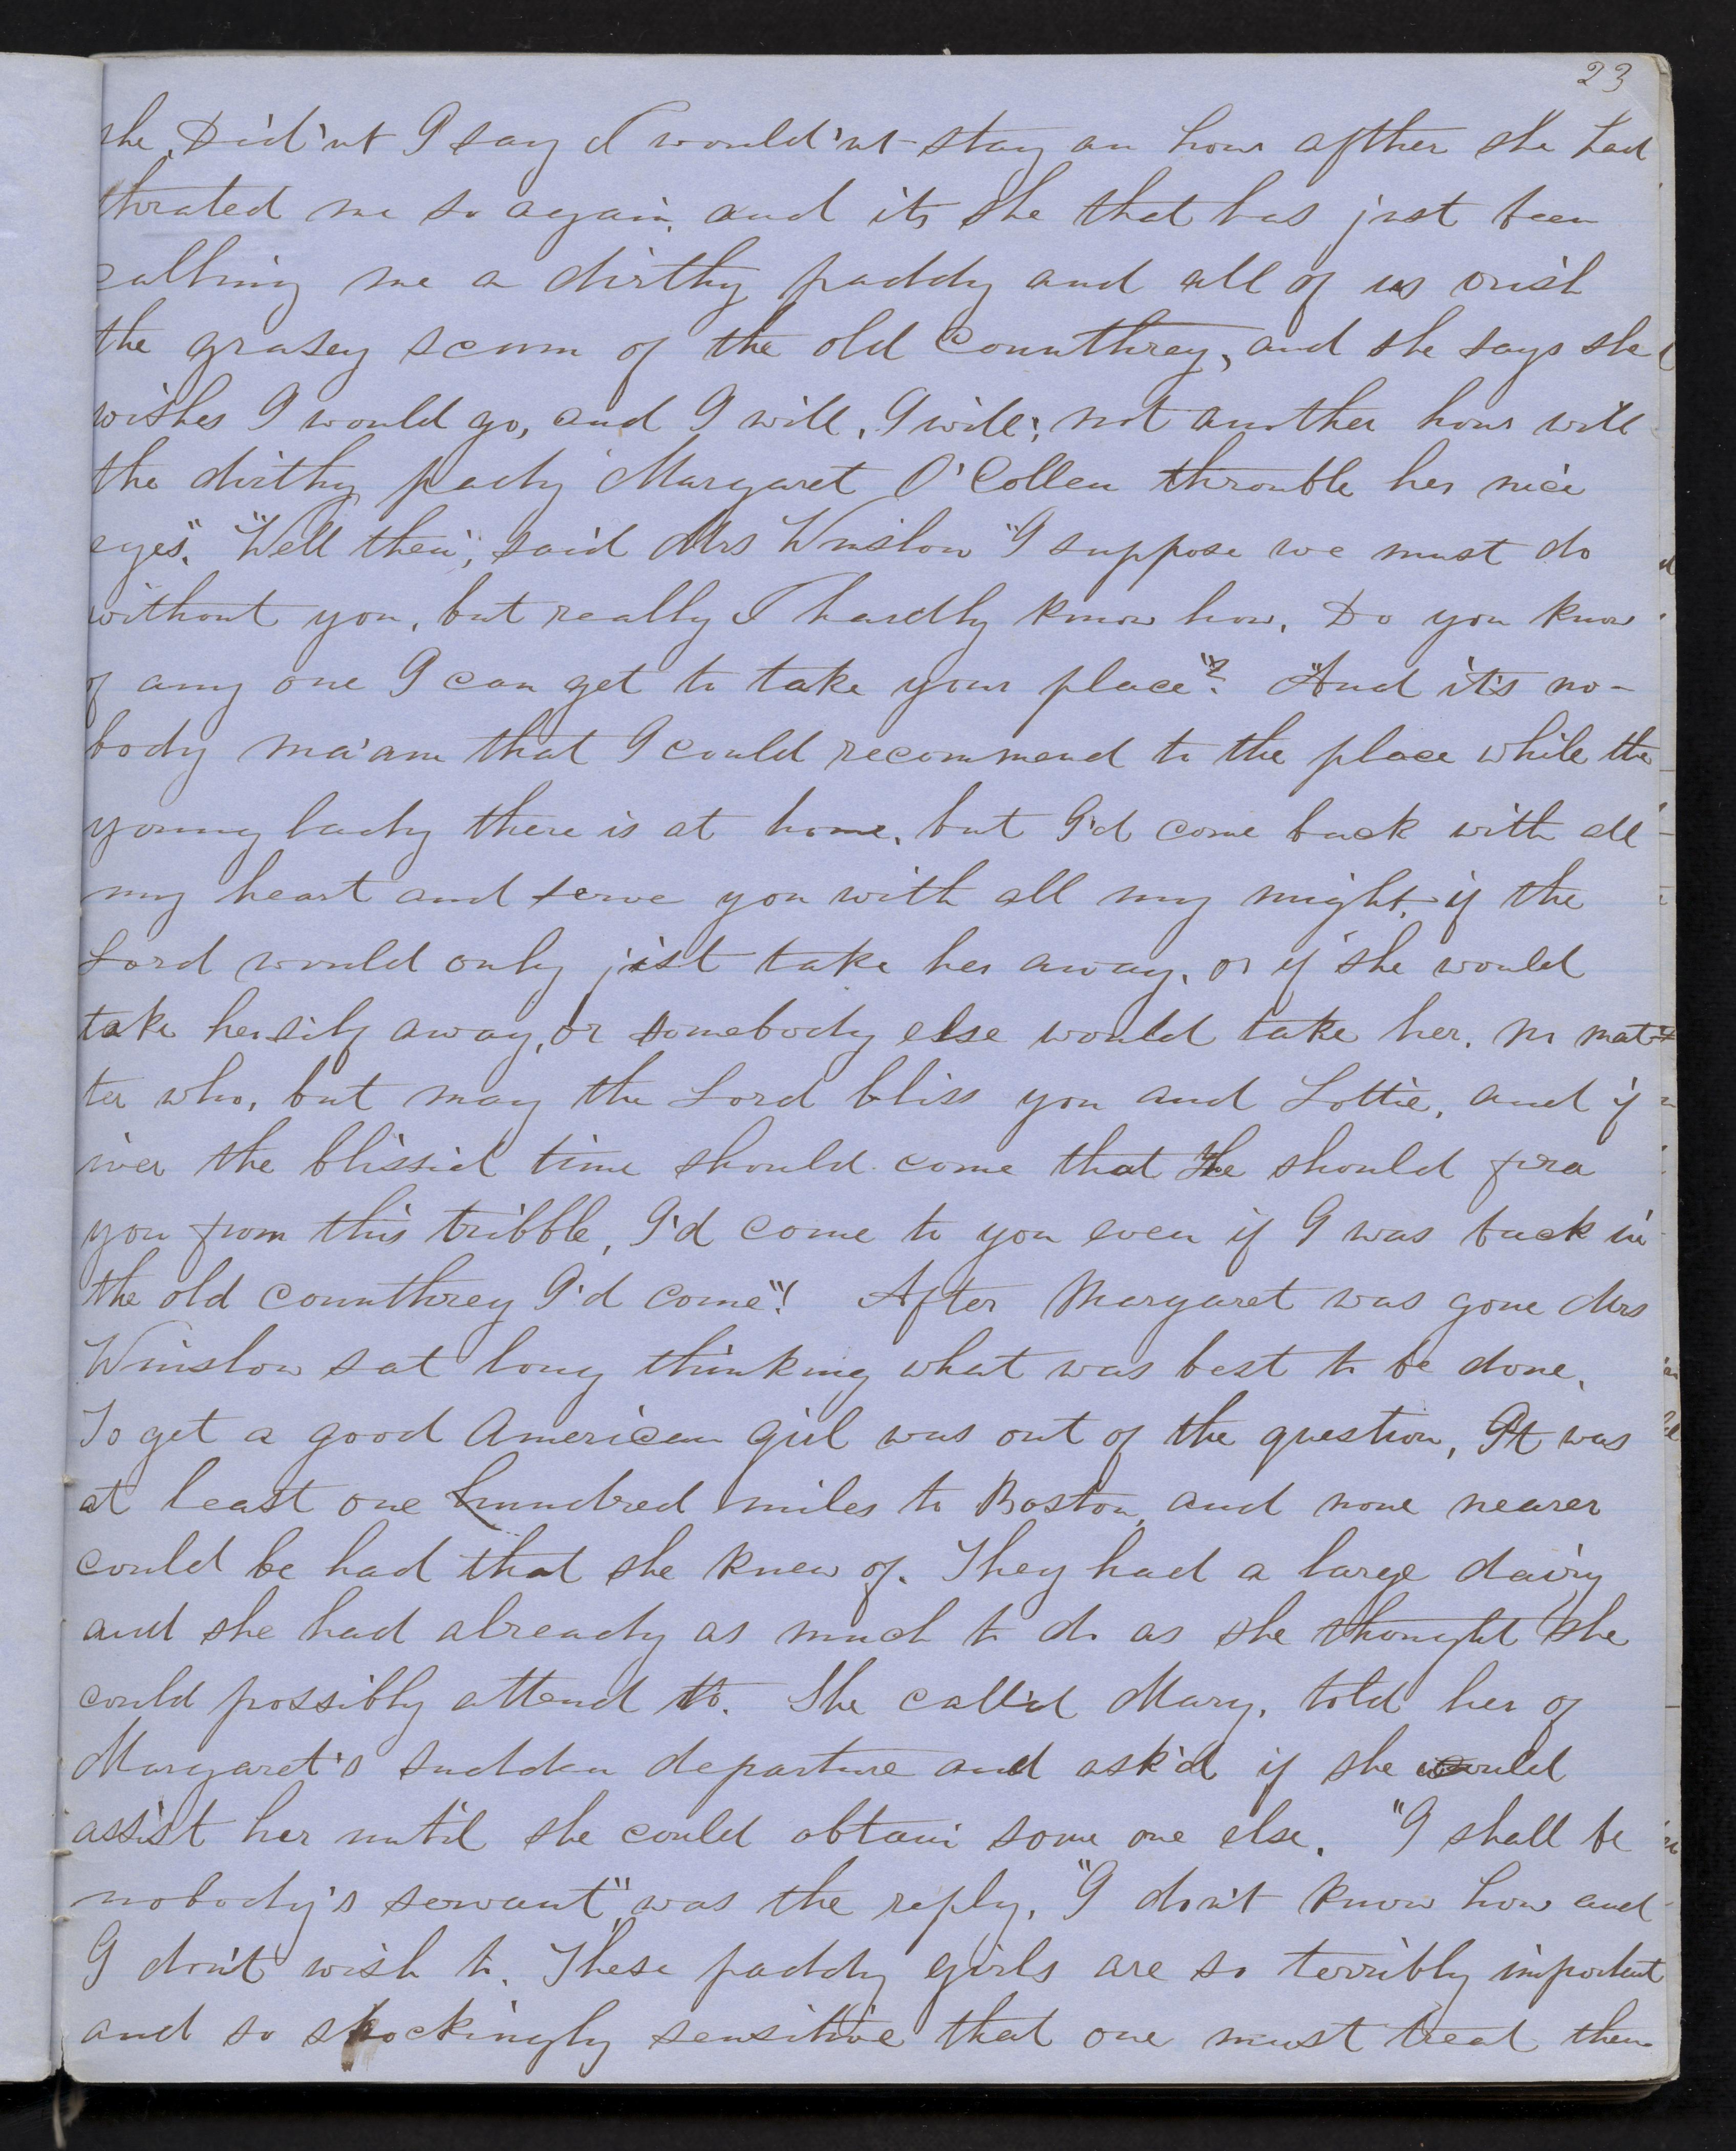 23
she. Did'nt I say I would'nt stay an hour afther she had
thrated me so again, and its she that has just been
callhing me a dirthy paddy and all of us orish
the grasey scum of the old counthrey, and she says she
wishes I would go, and I will, I will; not another hour will
the dirthy pady Margaret O'Collen throuble her nice
eyes". "Well then", said Mrs Winslow "I suppose we must do
without you, but really I hardly know how. Do you know
of any one I can get to take your place"? "And it's no-
body ma'am that I could recommend to the place while the
young lady there is at home, but I'd come back with all
my heart and serve you with all my might, if the
Lord would only jist take her away, or if she would
take hersilf away, or somebody else would take her, no mat-
ter who, but may the Lord bliss you and Lottie, and if
iver the blissid time should come that He should fra
you from this tribble, I'd come to you even if I was back in
the old counthrey I'd come"! After Margaret was gone Mrs
Winslow sat long thinking what was best to be done.
To get a good American girl was out of the question, It was
at least one hundred miles to Boston, and none nearer
could be had that she knew of. They had a large dairy
and she had already as much to do as she thought she
could possibly attend to. She call'd Mary, told her of
Margaret's sudden departure and ask'd if she would
assist her until she could obtain some one else. "I shall be
nobody's servant", was the reply, "I don't know how and
I don't wish to. These paddy girls are so terribly impodent
and so shockingly sensitive that one must treat them